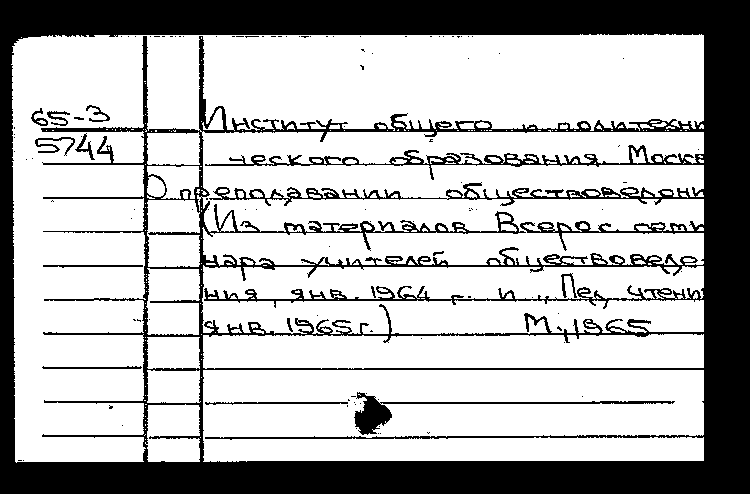 65-3
5744
Институт общего и политехни
ческого образования. Москва
О преподавании обществоведени
(Из материалов Всерос. семи
нара учителей обществоведе-
ния, янв. 1964 г. и „Пед. чтени
янв. 1965 г.) М., 1965